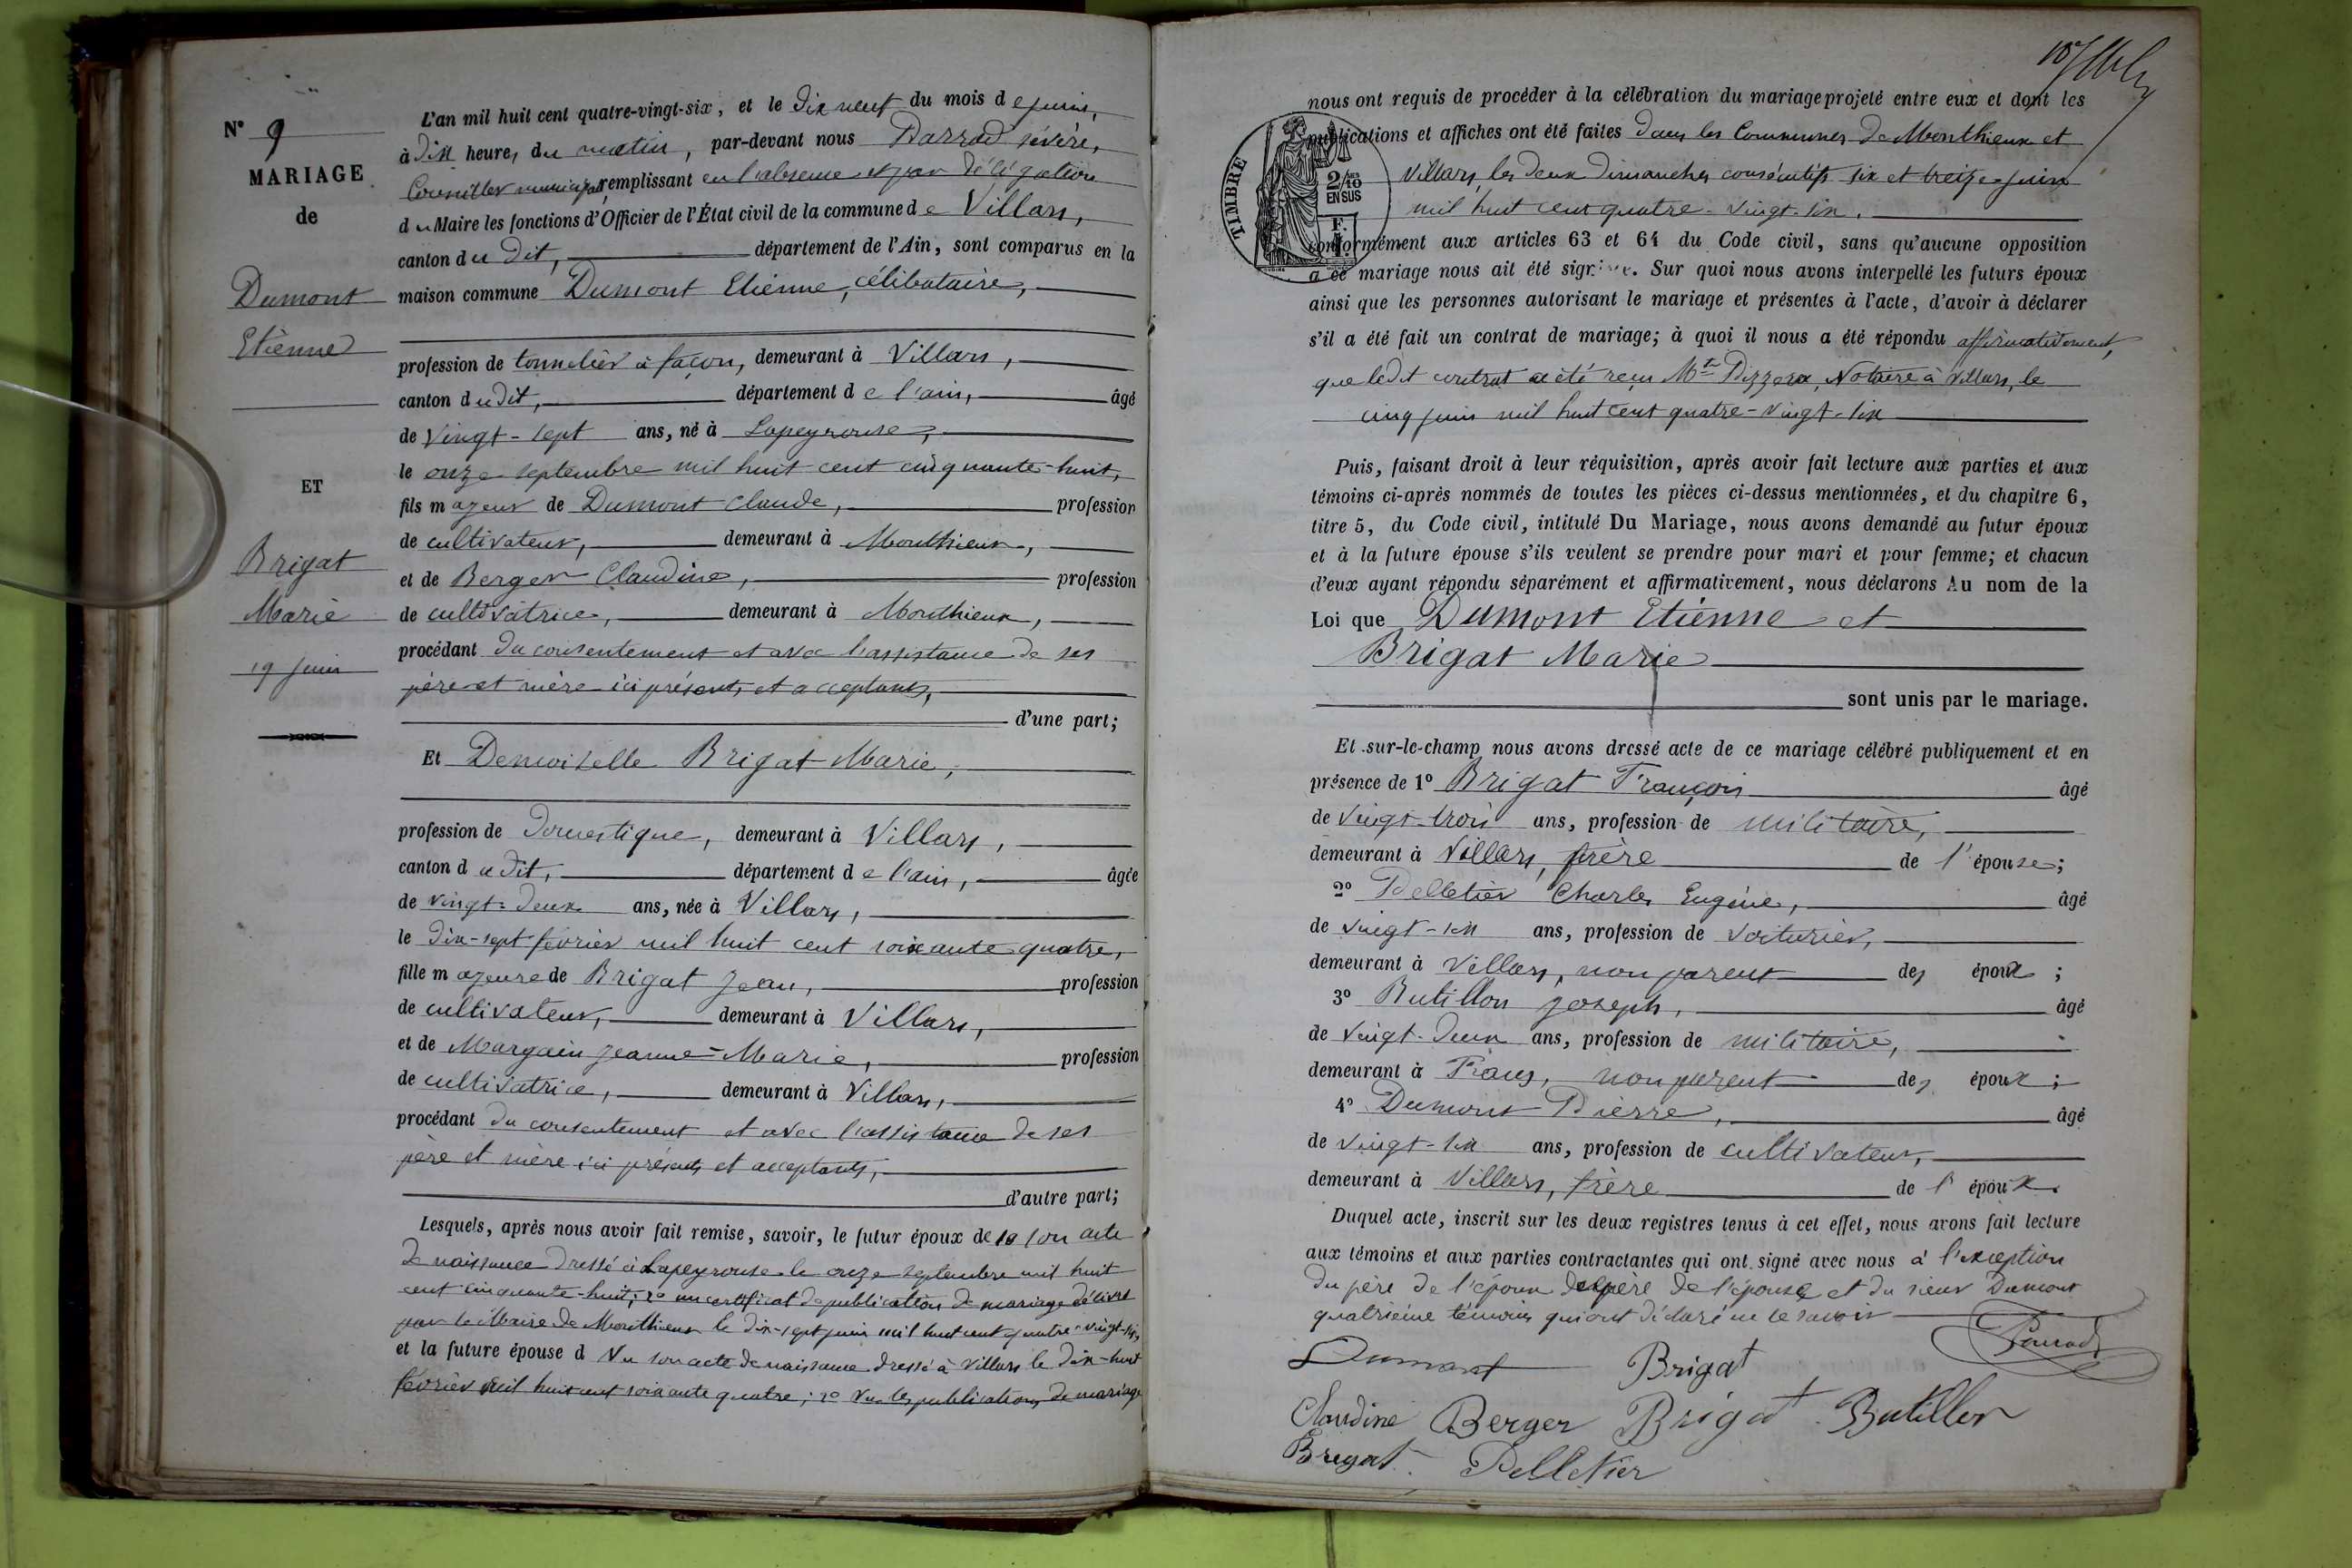 N° 9
MARIAGE
de
Dumont
Etienne
ET
Brigat
Marie
19 juin
L'an mil huit cent quatre-vingt-six, et le dix neuf du mois de juin,
à dix heures du matin, par-devant nous sévère,
Conseiller municipal, remplissant en l'absence et par délégation
du Maire les fonctions d'Officier de l'État civil de la commune de Villars,
canton du dit, département de l'Ain, sont comparus en la
maison commune Dumont Etienne, célibataire,
profession de tonnelier à façon, demeurant à Villars,
canton dudit, département de l'ain, âgé
de vingt-sept ans, né à Lapeyrouse,
le onze septembre mil huit cent cinquante-huit,
fils majeur de Dumont Claude, profession
de cultivateur, demeurant à Monthieux,
et de Berger Claudine, profession
de cultivatrice, demeurant à Monthieux,
procédant du consentement et avec l'assistance de ses
père et mère ici présents et acceptants,
d'une part;
Et Demoiselle Brigat Marie,
profession de domestique, demeurant à Villars,
canton dudit, département de l'ain, âgée
de vingt-deux ans, née à Villars,
le dix-sept février mil huit cent soixante quatre,
fille majeure de Brigat Jean, profession
de cultivateur, demeurant à Villars,
et de Margain Jeanne-Marie, profession
de cultivatrice, demeurant à Villars,
procédant du consentement et avec l'assistance de ses
père et mère ici présents et acceptants,
d'autre part;
Lesquels, après nous avoir fait remise, savoir, le futur époux de 1° son acte
de naissance dressé à Lapeyrouse le onze septembre mil huit
cent cinquante-huit; 2° un certificat de publication de mariage délivré
par le Maire de Monthieux le dix-sept juin mil huit cent quatre-vingt-six,
et la future épouse d Vu son acte de naissance dressé à Villars le dix-huit
février mil huit cent soixante quatre; 2° Vu les publications de mariage
nous ont requis de procéder à la célébration du mariage projeté entre eux et dont les
publications et affiches ont été faites dans les Communes de Monthieux et
Villars, les deux dimanches consécutifs six et treize juin
mil huit cent quatre-vingt-six,
TIMBRE
2/10
EN SUS
F.
conformément aux articles 63 et 64 du Code civil, sans qu'aucune opposition
à ce mariage nous ait été signifiée. Sur quoi nous avons interpellé les futurs époux
ainsi que les personnes autorisant le mariage et présentes à l'acte, d'avoir à déclarer
s'il a été fait un contrat de mariage; à quoi il nous a été répondu affirmativement,
que ledit contrat a été reçu Mtre Notaire à Villars, le
cinq juin mil huit cent quatre-vingt-six
Puis, faisant droit à leur réquisition, après avoir fait lecture aux parties et aux
témoins ci-après nommés de toutes les pièces ci-dessus mentionnées, et du chapitre 6,
titre 5, du Code civil, intitulé Du Mariage, nous avons demandé au futur époux
et à la future épouse s'ils veulent se prendre pour mari et pour femme; et chacun
d'eux ayant répondu séparément et affirmativement, nous déclarons Au nom de la
Loi que Dumont Etienne et
Brigat Marie
sont unis par le mariage.
Et sur-le-champ nous avons dressé acte de ce mariage célébré publiquement et en
présence de 1° Brigat François âgé
de vingt-trois ans, profession de militaire,
demeurant à Villars, frère de l'épouse;
2° Pelletier Charles Eugène, âgé
de vingt-six ans, profession de voiturier,
demeurant à Villars, non parent des époux;
3° Butillon Joseph, âgé
de vingt-deux ans, profession de militaire,
demeurant à Frans, non parent des époux;
4° Dumont Pierre, âgé
de vingt-six ans, profession de cultivateur,
demeurant à Villars, frère de l'époux.
Duquel acte, inscrit sur les deux registres tenus à cet effet, nous avons fait lecture
aux témoins et aux parties contractantes qui ont signé avec nous à l'exception
du père de l'époux du père de l'épouse et du sieur Dumont
quatrième témoin qui ont déclaré ne le savoir
Dumont Brigat
Claudine Berger Brigat Butillon
Brigat Pelletier